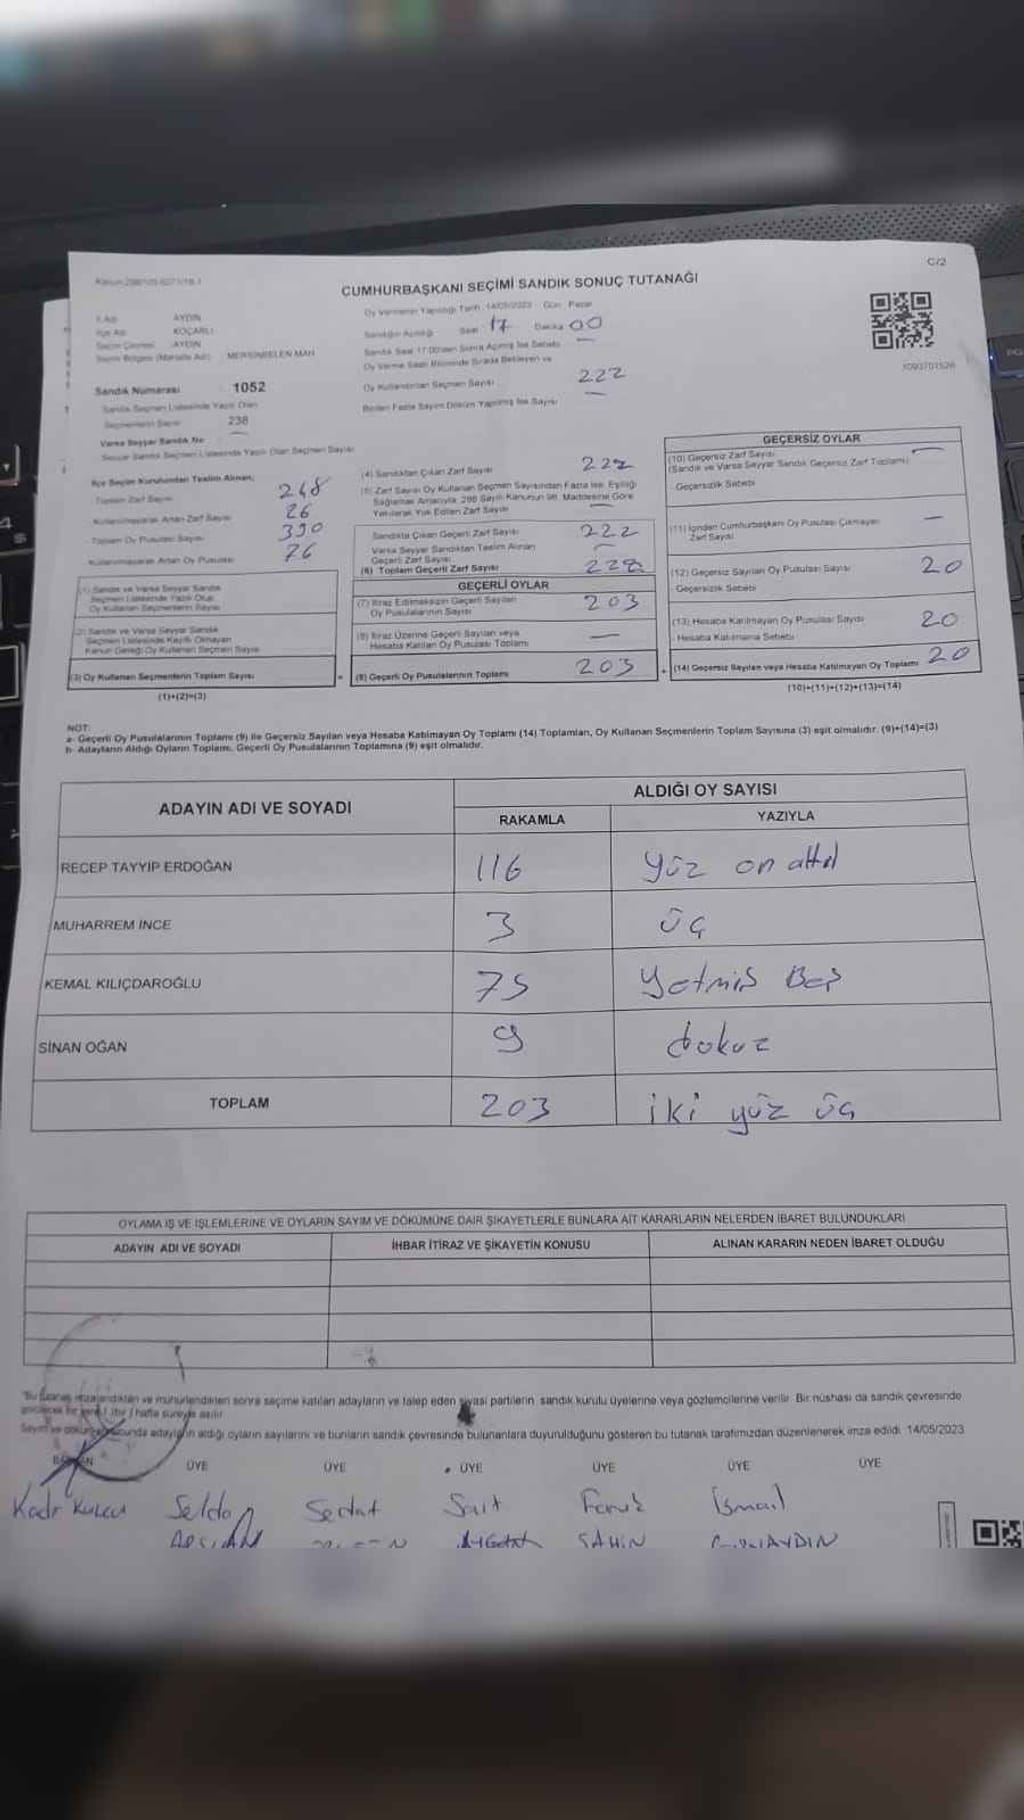 C/2
CUMHURBAŞKANI SEÇİMİ SANDIK SONUÇ TUTANAĞI
Oy Vermenin Yapıldığı Tarih :14/05/2023 Gün: Pazar
İl Adı AYDIN
İlçe Adı KOÇARLI
Seçim Çevresi AYDIN
Seçim Bölgesi (Mahalle Adı) MERSİNBELEN MAH
Sandığın Açıldığı Saat 17 Dakika 00
Sandık Saat 17:00'den Sonra Açılmış İse Sebebi
Oy Verme Saati Bitiminde Sırada Bekleyen ve
Oy Kullandırılan Seçmen Sayısı 222
Birden Fazla Sayım Döküm Yapılmış İse Sayısı
Sandık Numarası 1052
Sandık Seçmen Listesinde Yazılı Olan
Seçmenlerin Sayısı 238
Varsa Seyyar Sandık No
Seyyar Sandık Seçmen Listesinde Yazılı Olan Seçmen Sayısı
İlçe Seçim Kurulundan Teslim Alınan;
Toplam Zarf Sayısı 248
Kullanılmayarak Artan Zarf Sayısı 26
Toplam Oy Pusulası Sayısı 330
Kullanılmayarak Artan Oy Pusulası 76
(1) Sandık ve Varsa Seyyar Sandık
Seçmen Listesinde Yazılı Olup
Oy Kullanan Seçmenlerin Sayısı
(2) Sandık ve Varsa Seyyar Sandık
Seçmen Listesinde Kayıtlı Olmayan
Kanun Gereği Oy Kullanan Seçmen Sayısı
(3) Oy Kullanan Seçmenlerin Toplam Sayısı
(1)+(2)=(3)
(4) Sandıktan Çıkan Zarf Sayısı 222
(5) Zarf Sayısı Oy Kullanan Seçmen Sayısından Fazla İse, Eşitliği
Sağlamak Amacıyla, 298 Sayılı Kanunun 98. Maddesine Göre
Yakılarak Yok Edilen Zarf Sayısı —
Sandıkta Çıkan Geçerli Zarf Sayısı 222
Varsa Seyyar Sandıktan Teslim Alınan
Geçerli Zarf Sayısı —
(6) Toplam Geçerli Zarf Sayısı 222
GEÇERLİ OYLAR
(7) İtiraz Edilmeksizin Geçerli Sayılan
Oy Pusulalarının Sayısı 203
(8) İtiraz Üzerine Geçerli Sayılan veya
Hesaba Katılan Oy Pusulası Toplamı —
(9) Geçerli Oy Pusulalarının Toplamı 203
GEÇERSİZ OYLAR
(10) Geçersiz Zarf Sayısı —
(Sandık ve Varsa Seyyar Sandık Geçersiz Zarf Toplamı)
Geçersizlik Sebebi
(11) İçinden Cumhurbaşkanı Oy Pusulası Çıkmayan
Zarf Sayısı —
(12) Geçersiz Sayılan Oy Pusulası Sayısı 20
Geçersizlik Sebebi
(13) Hesaba Katılmayan Oy Pusulası Sayısı 20
Hesaba Katılmama Sebebi
(14) Geçersiz Sayılan veya Hesaba Katılmayan Oy Toplamı 20
(10)+(11)+(12)+(13)=(14)
NOT:
a- Geçerli Oy Pusulalarının Toplamı (9) ile Geçersiz Sayılan veya Hesaba Katılmayan Oy Toplamı (14) Toplamları, Oy Kullanan Seçmenlerin Toplam Sayısına (3) eşit olmalıdır. (9)+(14)=(3)
b- Adayların Aldığı Oyların Toplamı, Geçerli Oy Pusulalarının Toplamına (9) eşit olmalıdır.
ADAYIN ADI VE SOYADI ALDIĞI OY SAYISI
RAKAMLA YAZIYLA
RECEP TAYYİP ERDOĞAN 116 yüz on altı
MUHARREM İNCE 3 üç
KEMAL KILIÇDAROĞLU 75 yetmiş Beş
SİNAN OĞAN 9 dokuz
TOPLAM 203 iki yüz üç
OYLAMA İŞ VE İŞLEMLERİNE VE OYLARIN SAYIM VE DÖKÜMÜNE DAİR ŞİKAYETLERLE BUNLARA AİT KARARLARIN NELERDEN İBARET BULUNDUKLARI
ADAYIN ADI VE SOYADI İHBAR İTİRAZ VE ŞİKAYETİN KONUSU ALINAN KARARIN NEDEN İBARET OLDUĞU
Bu tutanak imzalandıktan ve mühürlendikten sonra seçime katılan adayların ve talep eden siyasi partilerin, sandık kurulu üyelerine veya gözlemcilerine verilir. Bir nüshası da sandık çevresinde
görülecek bir yere 1 (bir) hafta süreyle asılır.
Sayım ve döküm sonucunda adayların aldığı oyların sayılarını ve bunların sandık çevresinde bulunanlara duyurulduğunu gösteren bu tutanak tarafımızdan düzenlenerek imza edildi. 14/05/2023
BAŞKAN ÜYE ÜYE ÜYE ÜYE ÜYE ÜYE
Kadir Sedat Sait Faruk İsmail
ŞAHİN